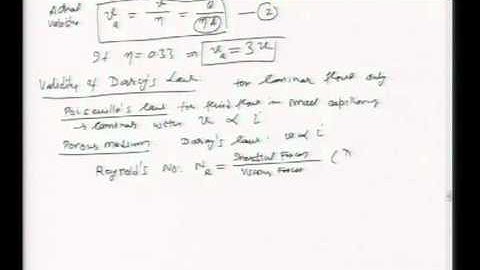 Actual
Velocity
v_a = v/η = Q/(ηA) — (2)
If η = 0.33 ⇒ v_a = 3v
Validity of Darcy's Law for laminar flow only
Poiseuille's law for fluid flow in small capillary
→ laminar with v ∝ i
Porous medium Darcy's law: v ∝ i
Reynold's No: N_R = Inertial Forces / Viscous Forces (